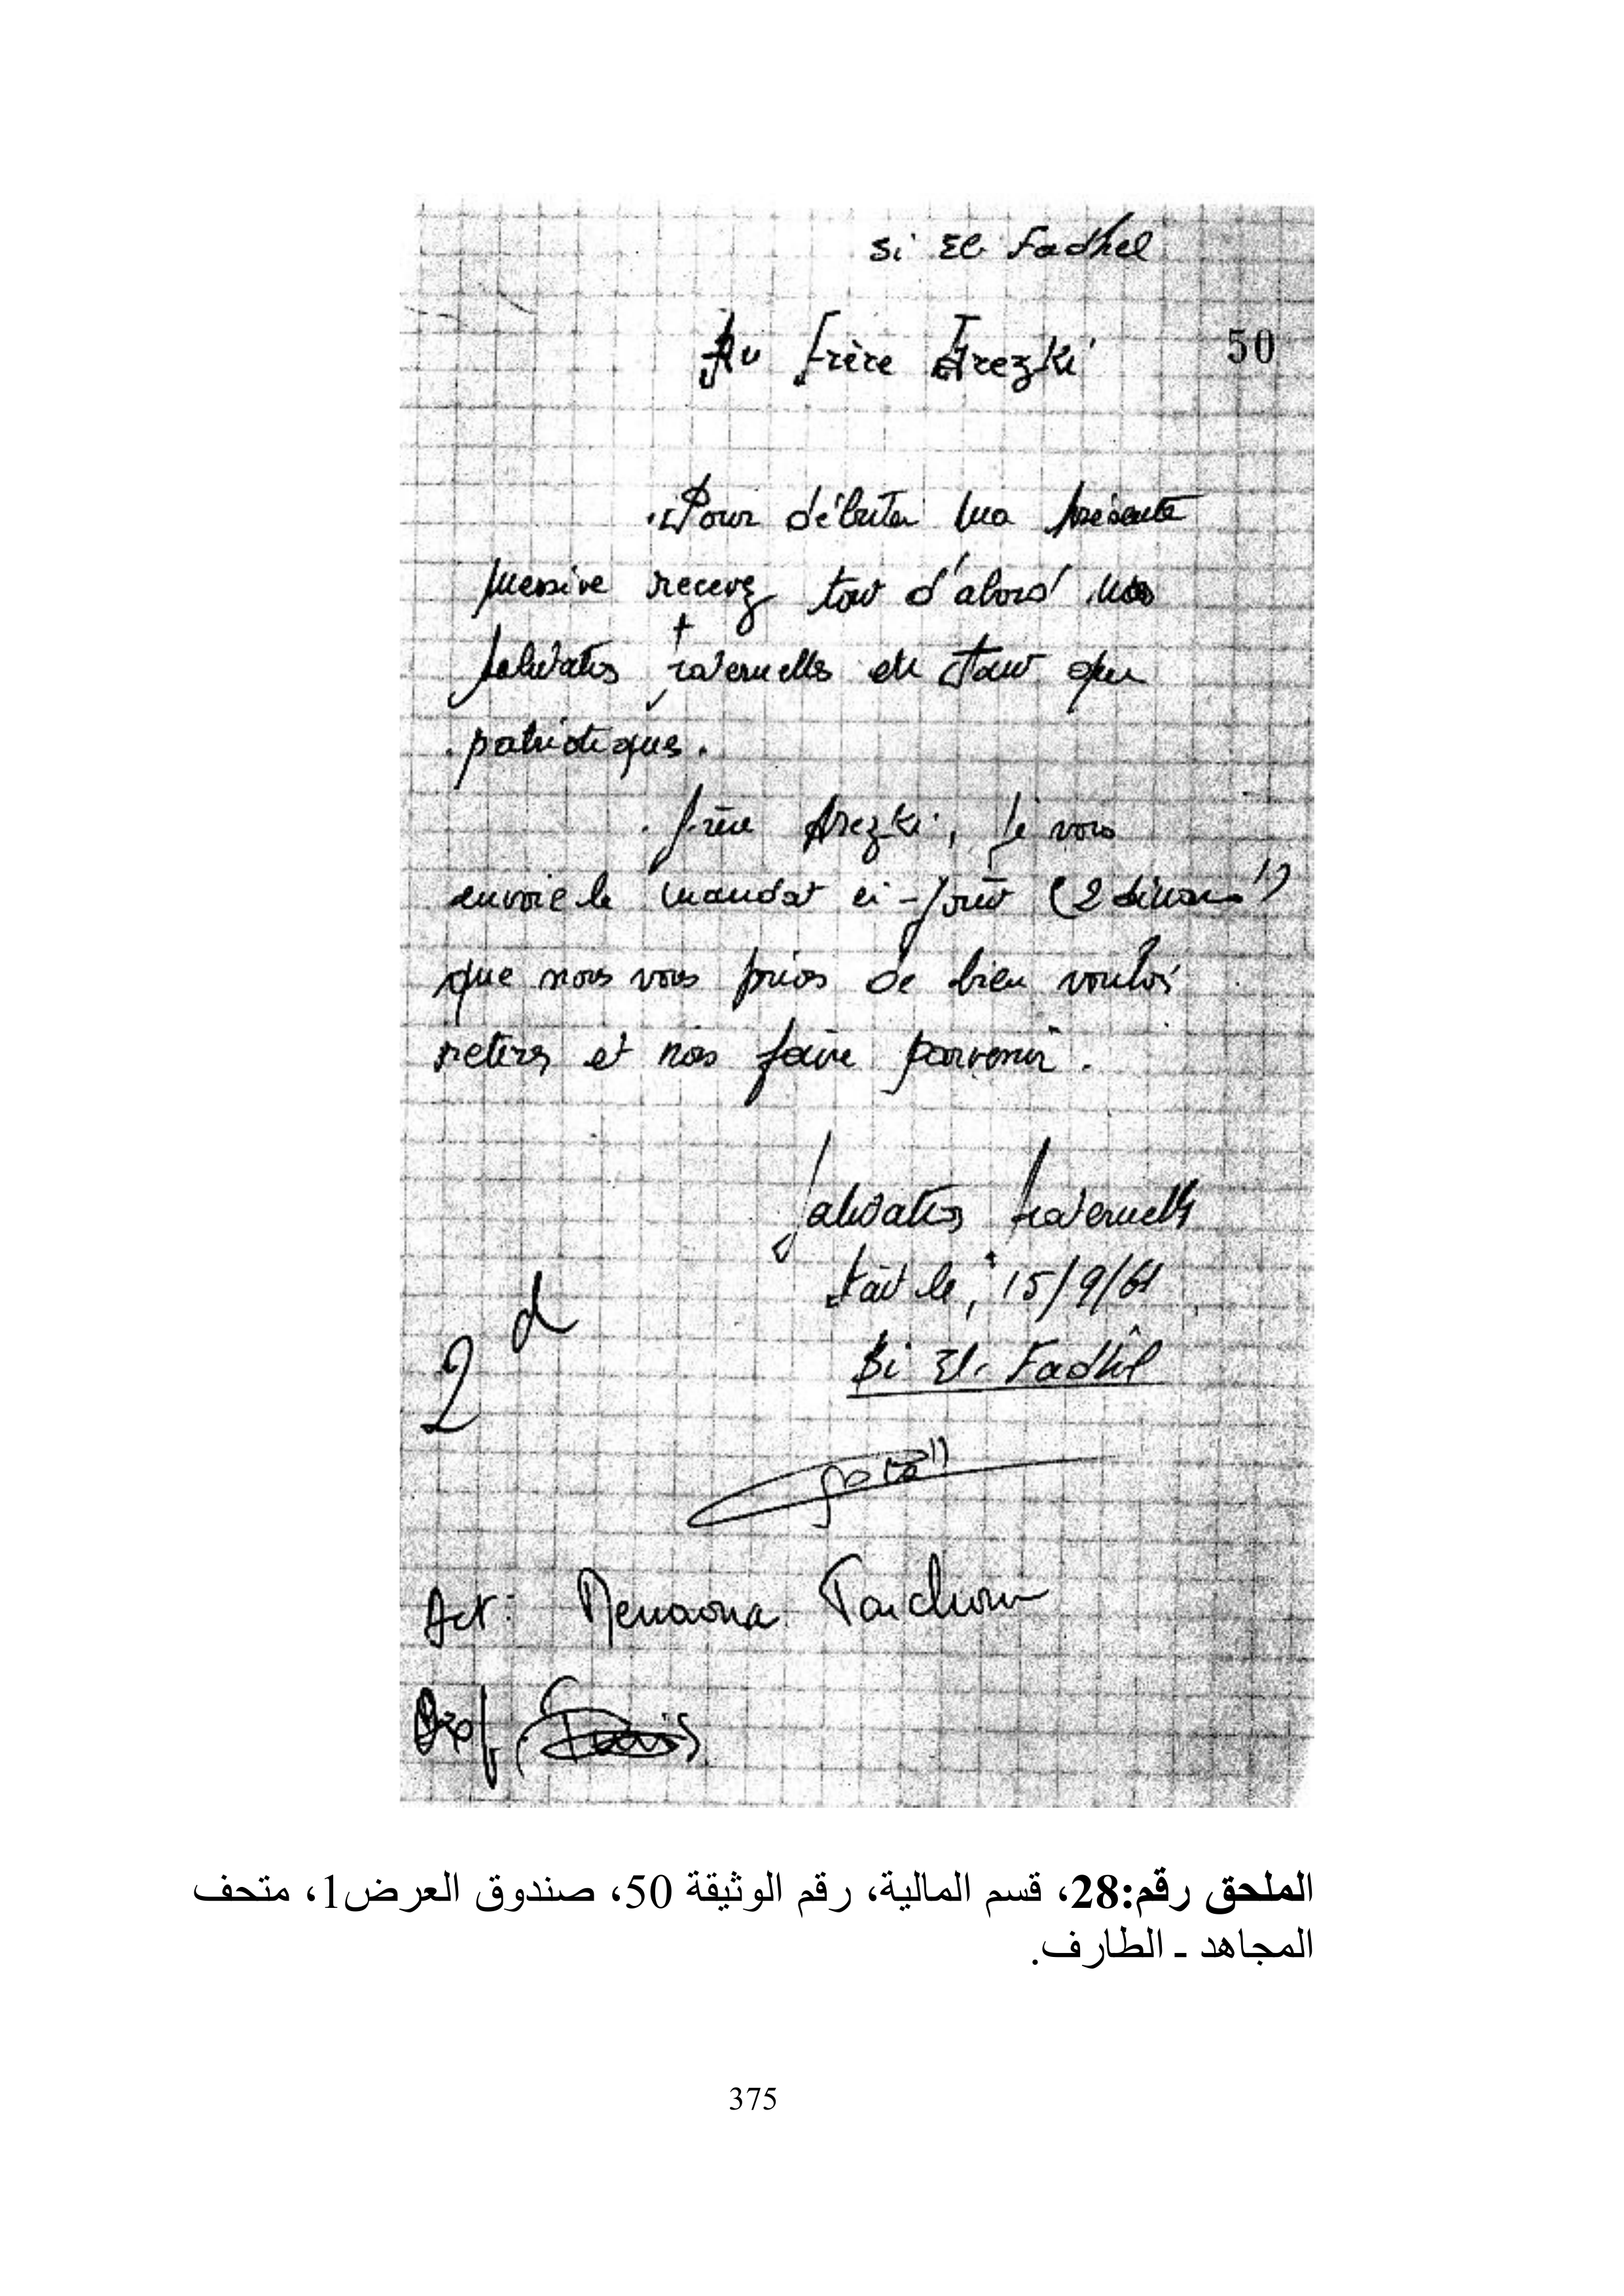 Si El Fadhel
Au frère Arezki
50
Pour débuter ma présente
missive recevez tout d'abord nos
salutations fraternelles en tant que
patriotiques.
frère Arezki, je vous
envoie le mandat ci-joint (2 dinars)
que nous vous prions de bien vouloir
retirer et nous faire parvenir.
Salutations fraternelles
fait le, 15/9/61
Si El Fadhel
2 d
Act:
الملحق رقم:28، قسم المالية، رقم الوثيقة 50، صندوق العرض1، متحف
المجاهد ـ الطارف.
375